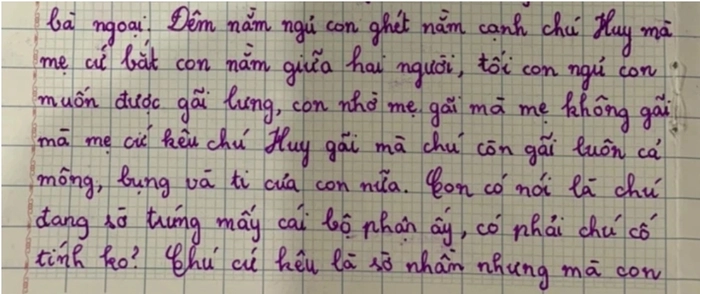 bà ngoại. Đêm nằm ngủ con ghét nằm cạnh chú Huy mà
mẹ cứ bắt con nằm giữa hai người, tối con ngủ con
muốn được gãi lưng, con nhờ mẹ gãi mà mẹ không gãi
mà mẹ cứ kêu chú Huy gãi mà chú còn gãi luôn cả
mông, bụng và ti của con nữa. Con có nói là chú
đang sờ trúng mấy cái bộ phận ấy, có phải chú cố
tình ko? Chú cứ kêu là sờ nhầm nhưng mà con